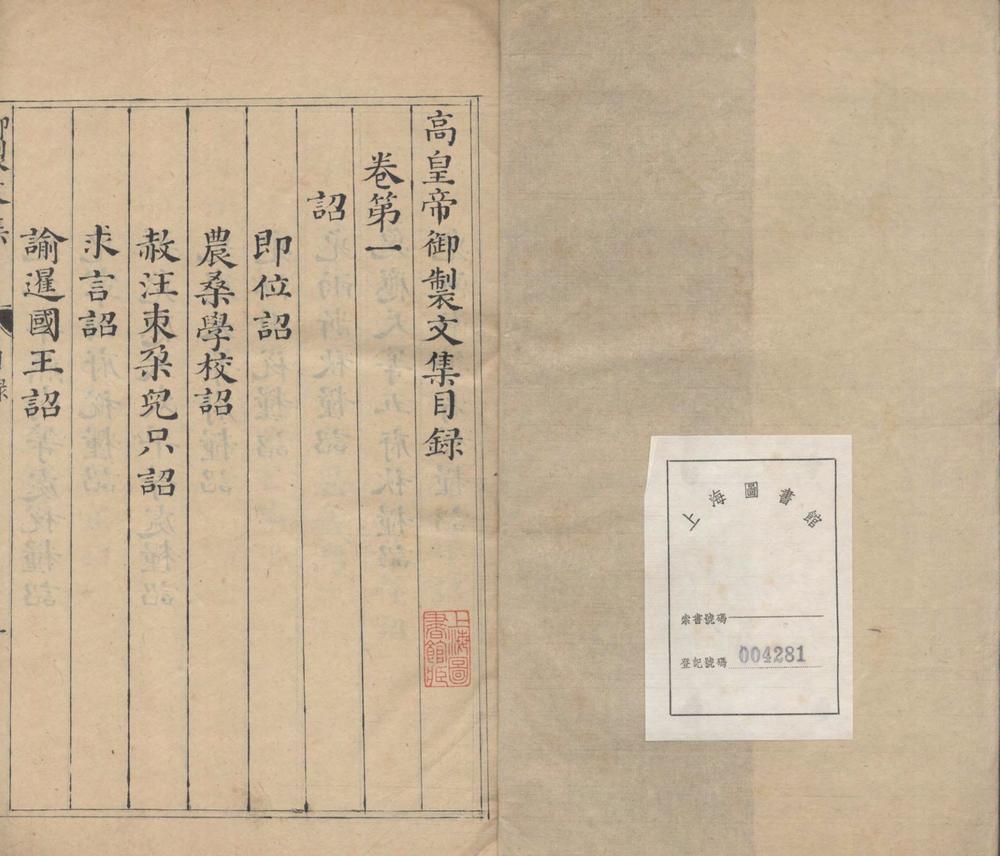 上海圖書館
索書號碼
登記號碼 004281
高皇帝御製文集目録
卷第一
詔
即位詔
農桑學校詔
赦汪束朶兒只詔
求言詔
諭暹國王詔
上海圖書館藏